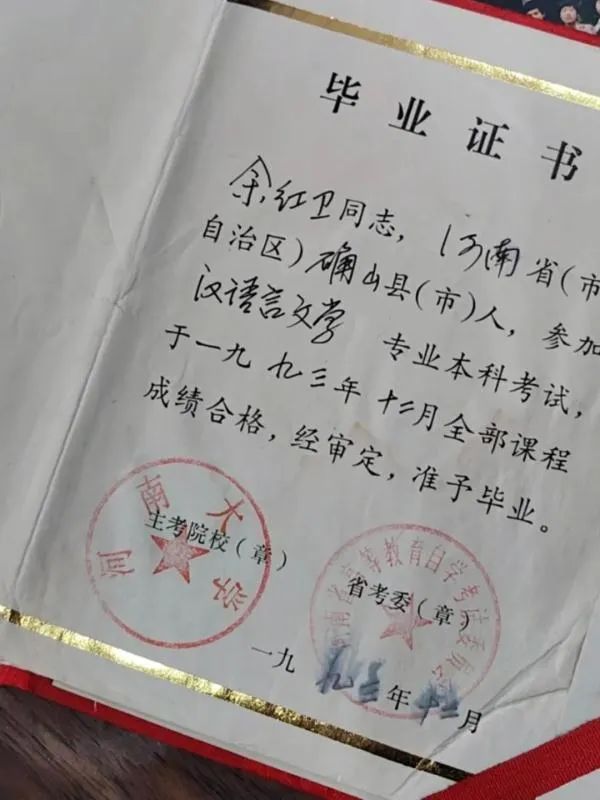 毕业证书
余红卫同志，河南省(市
自治区)确山县(市)人，参加
汉语言文学 专业本科考试，
于一九九三年十二月全部课程
成绩合格，经审定，准予毕业。
河南大学
主考院校(章)
河南省高等教育自学考试委员会
省考委(章)
一九九三年十二月